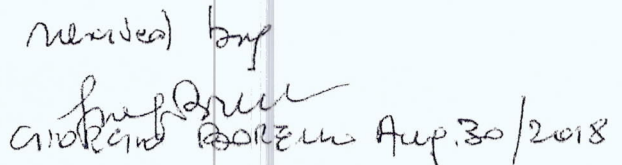 received by
GIORGIO BORELLO Aug.30/2018